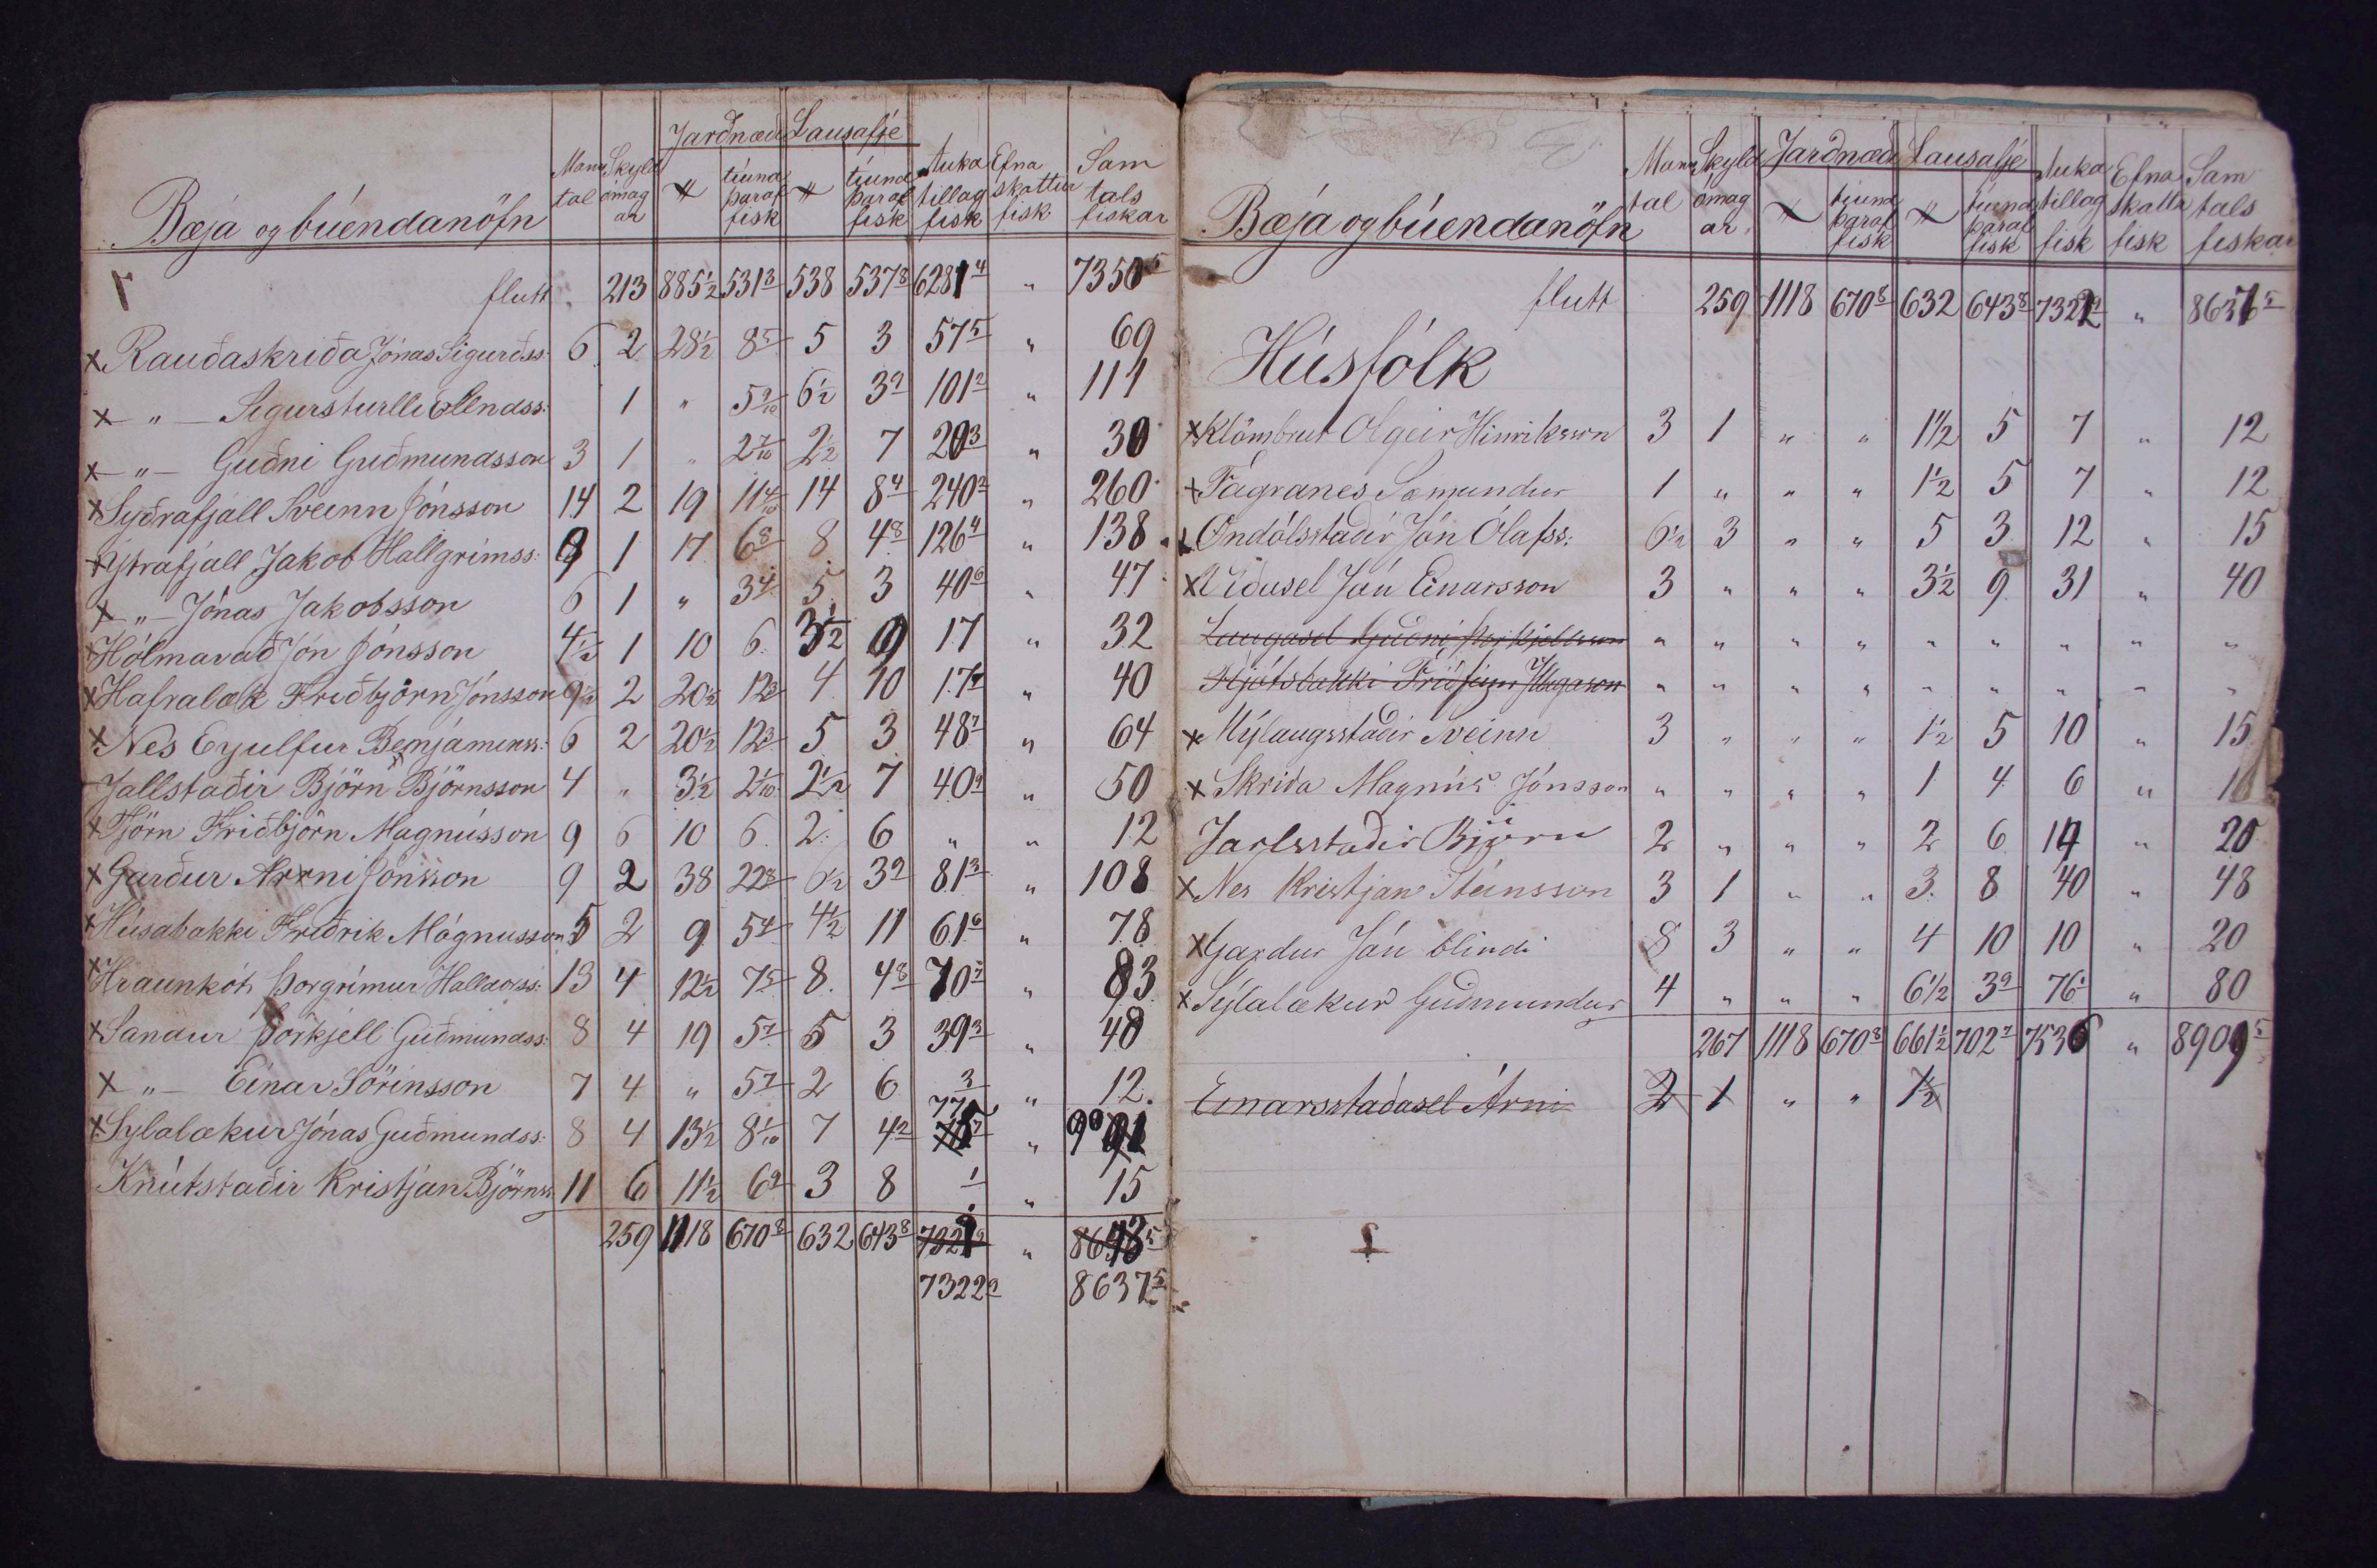 Jarðnæði Lausafje
Bæja og búendanöfn Manntal Skyldómagar # tíund þaraf fisk # tíund þaraf fisk Auka tillag fisk Efna skattur fisk Sam tals fiskar
flutt 213 885½ 531 3 538 537 8 6281 4 " 7350 5
x Rauðaskriða Jónas Sigurðss: 6 2 28½ 8 5 5 3 57 5 " 69
x — " — Sigursturlli Ellndss: 1 " 5 9/10 6½ 3 9 101 2 " 111
x — " — Guðni Guðmundsson 3 1 " 2 7/10 2½ 7 20 3 " 30
x Syðrafjall Sveinn Jónsson 14 2 19 11 4/10 14 8 4 240 2 " 260
x Ytrafjall Jakob Hallgrímss: 9 1 17 6 8 8 4 8 126 4 " 138
x — " — Jónas Jakobsson 6 1 " 3 4 5 3 40 6 " 47
x Hólmavað Jón Jónsson 4½ 1 10 6 3½ 9 17 " 32
x Hafralæk Friðbjörn Jónsson 9½ 2 20½ 12 3 4 10 17 7 " 40
x Nes Eyulfur Benjámínss: 6 2 20½ 12 3 5 3 48 7 " 64
Jallstaðir Björn Björnsson 4 " 3½ 2 1/10 2½ 7 40 9 " 50
x Tjörn Friðbjörn Magnússon 9 6 10 6 2 6 " " 12
x Garður Arrni Jónsson 9 2 38 22 8 6½ 3 9 81 3 " 108
x Húsabakki Friðrik Mágnusson 5 2 9 5 4 4½ 11 61 6 " 78
x Hraunkot Þorgrímur Halldorss: 13 4 12½ 7 5 8 4 8 70 7 " 83
x Sandur Þorkjell Guðmundss: 8 4 19 5 7 5 3 39 3 " 48
x — " — Einar Sörinsson 7 4 " 5 7 2 6 3 " 12
x Sylalækur Jónas Guðmundss: 8 4 13½ 8 1/10 7 4 2 77 7 " 90
Knútstaðir Kristján Björnss 11 6 11½ 6 9 3 8 1 " 15
259 1118 670 8 632 643 8 "
7322 9 8637 5
Jarðnæði Lausafje
Bæja og búendanöfn Mann tal Skyld ómag ar # tíund þaraf fisk # tíund þaraf fisk Auka tillag fisk Efna skatta fisk Sam tals fiskar
flutt 259 1118 670 8 632 643 8 7322 9 " 8637 5
Húsfólk
x Klömbrut Olgeir Hinriksson 3 1 " " 1½ 5 7 " 12
x Fagranes Sæmundur 1 " " " 1½ 5 7 " 12
x Öndólsstaðir Jón Ólafss: 6½ 3 " " 5 3 12 " 15
x Víðasel Ján Einarsson 3 " " " 3½ 9 31 " 40
Laugasel Guðni Þorkjellsson " " " " " " " " "
Fljótsbakki Friðfinn Illugason " " " " " " " " "
x Mýlaugsstaðir Sveinn 3 " " " 1½ 5 10 " 15
x Skriða Magnús Jónsson " " " " 1 4 6 " 10
Jarlsstaðir Björn 2 " " " 2 6 14 " 20
x Nes Kristjan Steinsson 3 1 " " 3 8 40 " 48
x Garður Ján blindi 8 3 " " 4 10 10 " 20
x Sýlalækur Guðmundur 4 " " " 6½ 3 9 76 1 " 80
267 1118 670 8 661½ 702 7 7536 " 8909 5
Einarsstaðasel Árni 2 1 " " 1½